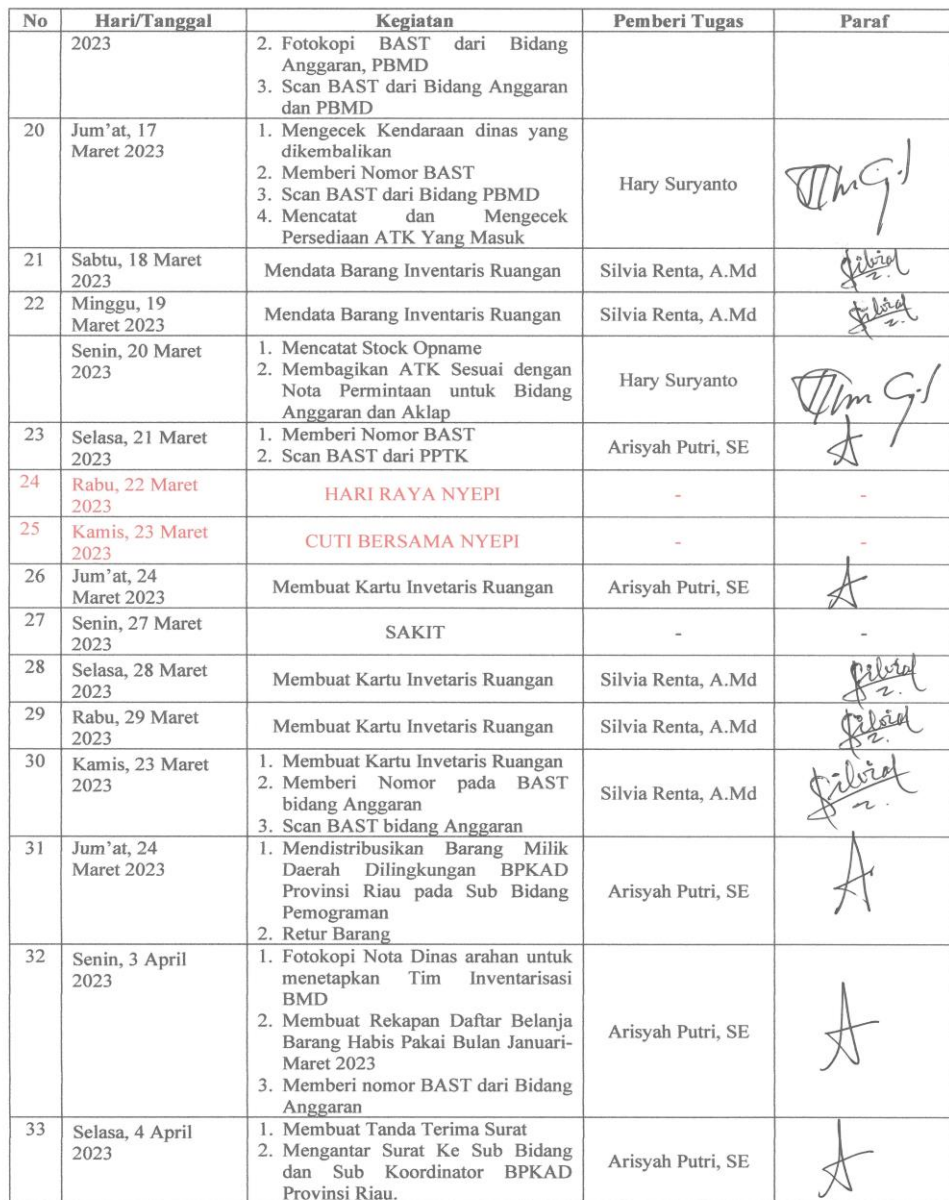 No Hari/Tanggal Kegiatan Pemberi Tugas Paraf
2023
2. Fotokopi BAST dari Bidang
Anggaran, PBMD
3. Scan BAST dari Bidang Anggaran
dan PBMD
20 Jum'at, 17
Maret 2023
1. Mengecek Kendaraan dinas yang
dikembalikan
2. Memberi Nomor BAST
3. Scan BAST dari Bidang PBMD
4. Mencatat dan Mengecek
Persediaan ATK Yang Masuk
Hary Suryanto
21 Sabtu, 18 Maret
2023
Mendata Barang Inventaris Ruangan
Silvia Renta, A.Md
22 Minggu, 19
Maret 2023
Mendata Barang Inventaris Ruangan
Silvia Renta, A.Md
Senin, 20 Maret
2023
1. Mencatat Stock Opname
2. Membagikan ATK Sesuai dengan
Nota Permintaan untuk Bidang
Anggaran dan Aklap
Hary Suryanto
23 Selasa, 21 Maret
2023
1. Memberi Nomor BAST
2. Scan BAST dari PPTK
Arisyah Putri, SE
24 Rabu, 22 Maret
2023
HARI RAYA NYEPI
- -
25 Kamis, 23 Maret
2023
CUTI BERSAMA NYEPI
- -
26 Jum'at, 24
Maret 2023
Membuat Kartu Invetaris Ruangan
Arisyah Putri, SE
27 Senin, 27 Maret
2023
SAKIT
- -
28 Selasa, 28 Maret
2023
Membuat Kartu Invetaris Ruangan
Silvia Renta, A.Md
29 Rabu, 29 Maret
2023
Membuat Kartu Invetaris Ruangan
Silvia Renta, A.Md
30 Kamis, 23 Maret
2023
1. Membuat Kartu Invetaris Ruangan
2. Memberi Nomor pada BAST
bidang Anggaran
3. Scan BAST bidang Anggaran
Silvia Renta, A.Md
31 Jum'at, 24
Maret 2023
1. Mendistribusikan Barang Milik
Daerah Dilingkungan BPKAD
Provinsi Riau pada Sub Bidang
Pemograman
2. Retur Barang
Arisyah Putri, SE
32 Senin, 3 April
2023
1. Fotokopi Nota Dinas arahan untuk
menetapkan Tim Inventarisasi
BMD
2. Membuat Rekapan Daftar Belanja
Barang Habis Pakai Bulan Januari-
Maret 2023
3. Memberi nomor BAST dari Bidang
Anggaran
Arisyah Putri, SE
33 Selasa, 4 April
2023
1. Membuat Tanda Terima Surat
2. Mengantar Surat Ke Sub Bidang
dan Sub Koordinator BPKAD
Provinsi Riau.
Arisyah Putri, SE